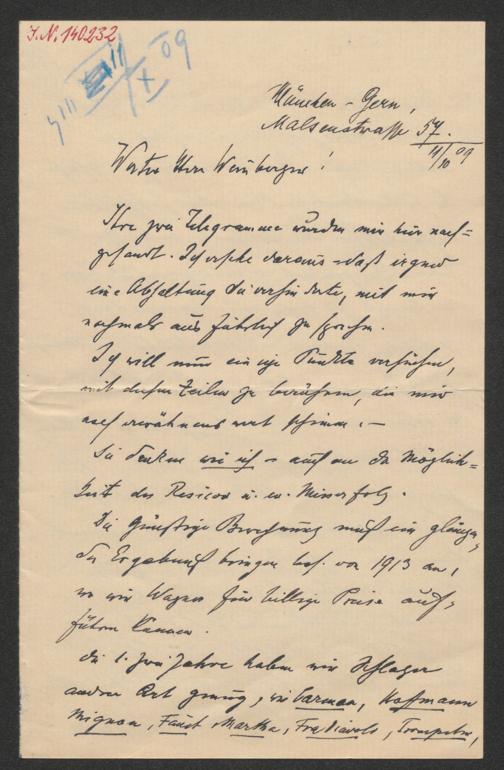 I.N. 140232
11/X 09
München-Gern,
Malsenstrasse 57.
11/10 09
Werter Herr Weinberger!
Ihre zwei Telegramme wurden mir hier nach=
gesandt. Ich ersehe daraus daß irgend
eine Abhaltung Sie verhinderte, mit mir
nochmals ausführlich zu sprechen.
Ich will nun einige Punkte versuchen,
mit diesen Zeilen zu berühren, die mir
noch erwähnenswert scheinen. –
Sie denken wie ich – auch an die Möglich=
keit des Risicos u. ev. Misserfolgs.
Die günstige Berechnung muß ein glänzen=
des Ergebniß bringen bes. von 1913 an,
wo wir Wagner für billige Preise auf=
führen können.
Die 1. zwei Jahre haben wir Schlager
andrer Art genug, wie Carmen, Hoffmann
Mignon, Faust, Martha, Fra Diavolo, Trompeter,